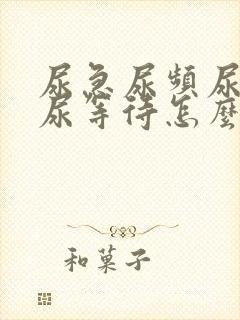 尿急尿頻尿
尿等待怎麼
和菓子